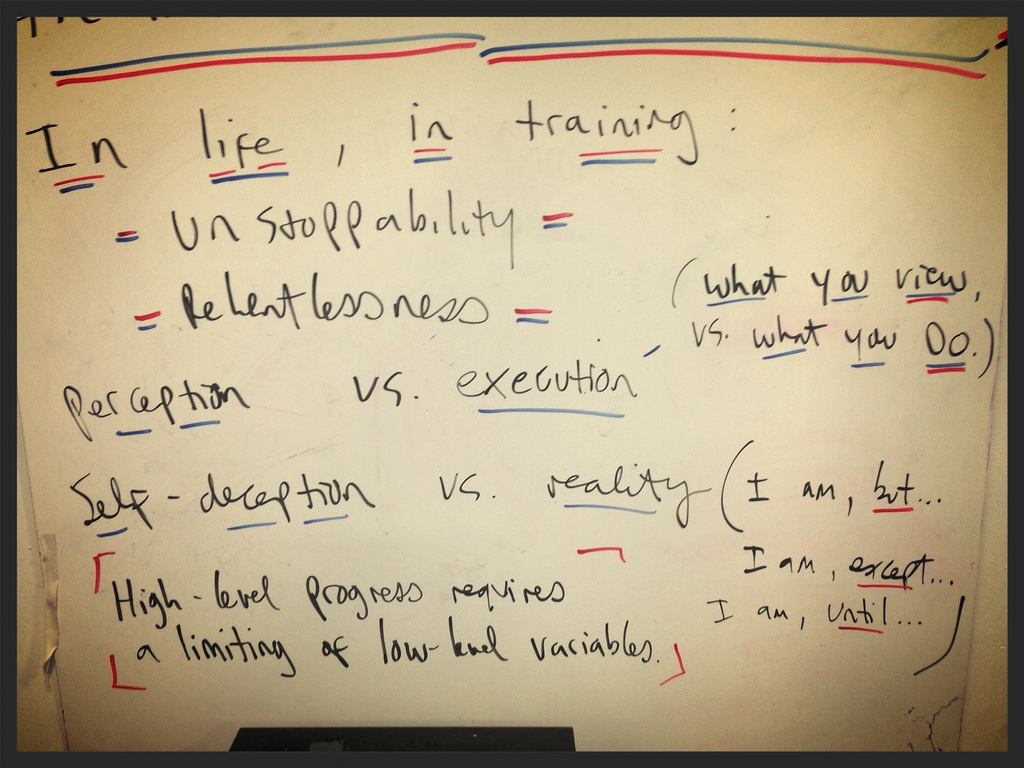 In life, in training:
= Unstoppability =
= Relentlessness =
(what you view,
vs. what you Do.)
Perception vs. execution
Self-deception vs. reality (I am, but...
I am, except...
I am, until...)
High-level progress requires
a limiting of low-level variables.